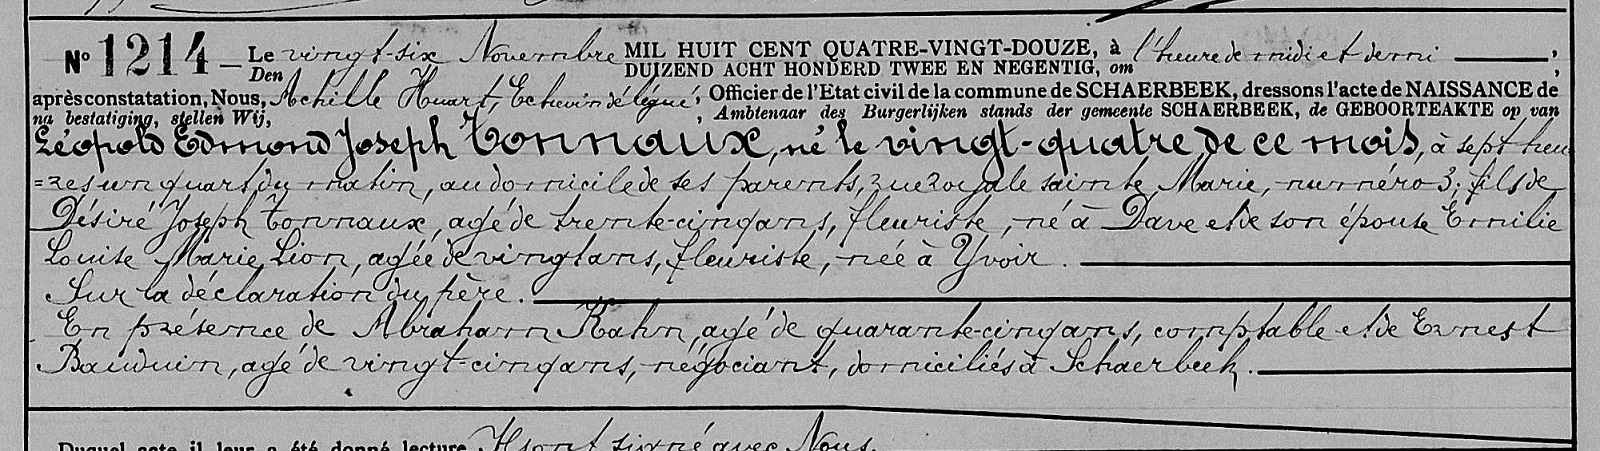 N° 1214 — Le vingt-six Novembre MIL HUIT CENT QUATRE-VINGT-DOUZE, à l'heure de midi et demi ———,
Den DUIZEND ACHT HONDERD TWEE EN NEGENTIG, om ;
après constatation, Nous, Achille Huart, Echevin délégué, Officier de l'Etat civil de la commune de SCHAERBEEK, dressons l'acte de NAISSANCE de
na bestatiging, stellen Wij, , Ambtenaar des Burgerlijken stands der gemeente SCHAERBEEK, de GEBOORTEAKTE op van
Léopold Edmond Joseph Tonnaux, né le vingt-quatre de ce mois, à sept heu-
=res un quart du matin, au domicile de ses parents, rue royale sainte Marie, numéro 3; fils de
Désiré Joseph Tonnaux, agé de trente-cinq ans, fleuriste, né à Dave et de son épouse Emilie
Louise Marie Lion, agée de vingt ans, fleuriste, née à Yvoir.
Sur la déclaration du père.
En présence de Abraham Kahn, agé de quarante-cinq ans, comptable et de Ernest
Bauduin, agé de vingt-cinq ans, négociant, domiciliés à Schaerbeek.
Duquel acte il leur a été donné lecture Ils ont signé avec Nous.